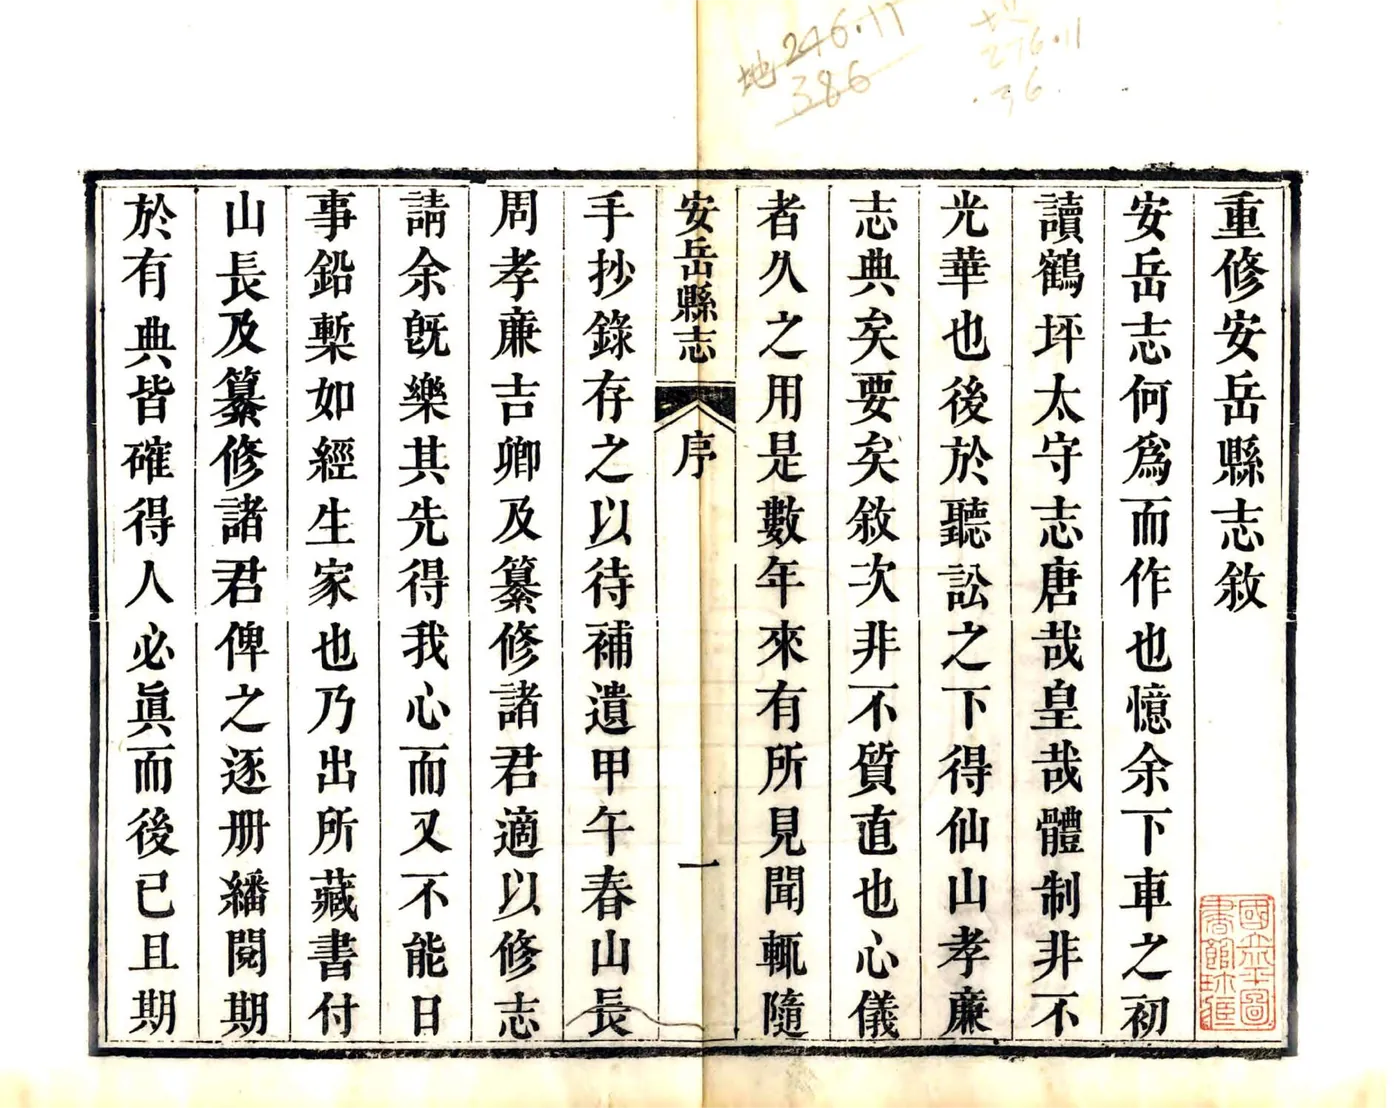 地 246.11
386
276.11
.36.
重修安岳縣志敘
安岳志何爲而作也憶余下車之初
讀鶴坪太守志唐哉皇哉體制非不
光華也後於聽訟之下得仙山孝廉
志典矣要矣敘次非不質直也心儀
者久之用是數年來有所見聞輒隨
安岳縣志 序 一
手抄錄存之以待補遺甲午春山長
周孝廉吉卿及纂修諸君適以修志
請余旣樂其先得我心而又不能日
事鉛槧如經生家也乃出所藏書付
山長及纂修諸君俾之逐册繙閱期
於有典皆確得人必眞而後已且期
國立北平圖
書館珍藏